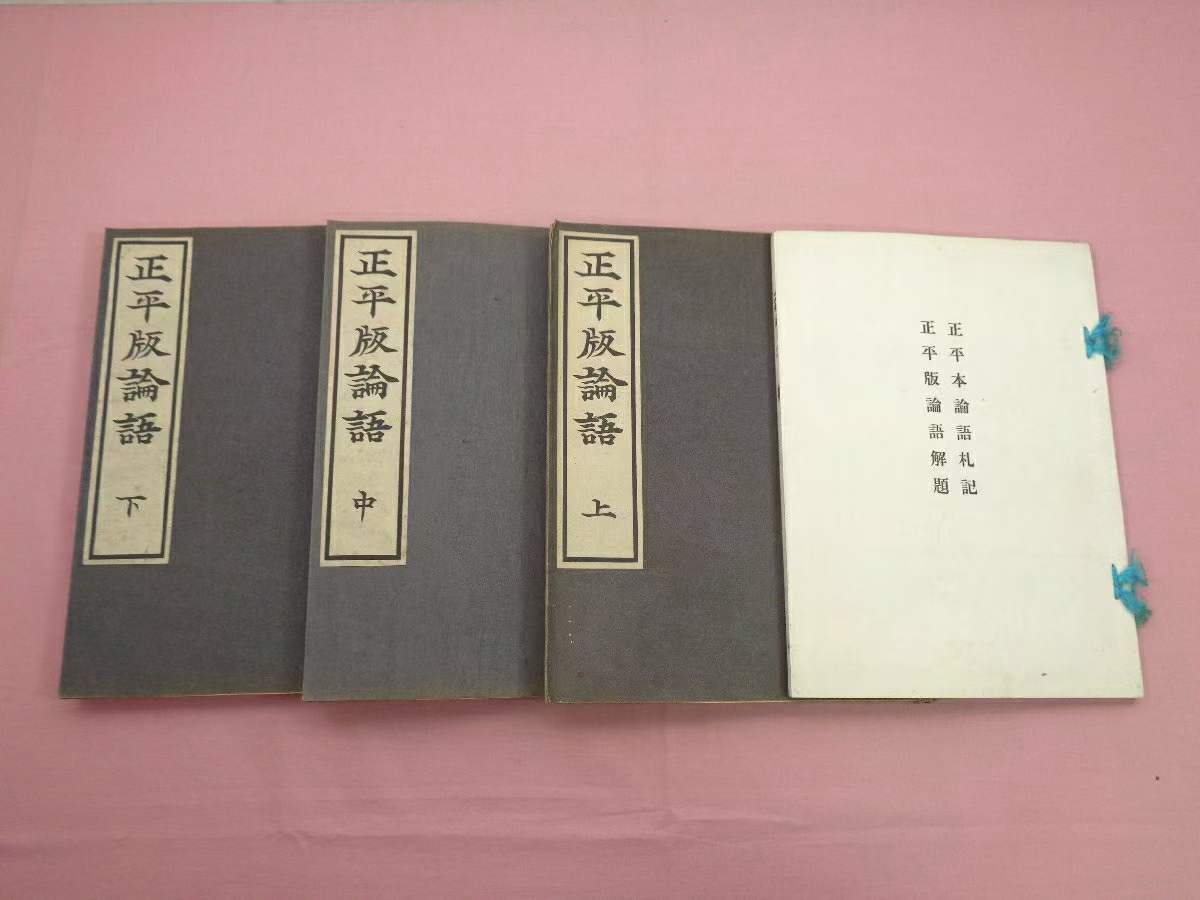 正平本論語札記
正平版論語解題
正平版論語 上
正平版論語 中
正平版論語 下